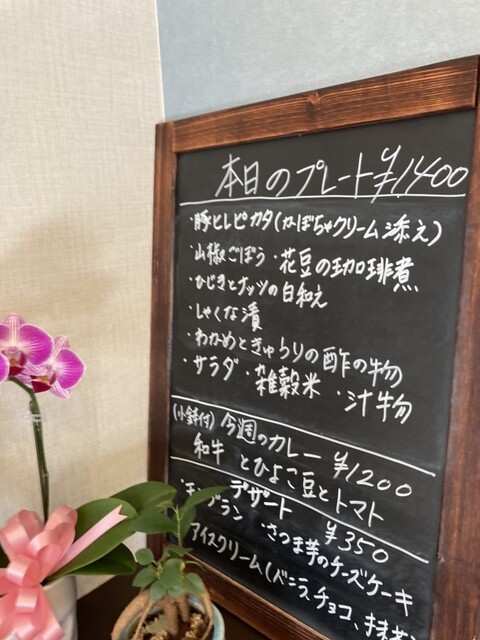 本日のプレート ¥1400
・豚ヒレピカタ(かぼちゃクリーム添え)
・山椒ごぼう ・花豆の珈琲煮
・ひじきとナッツの白和え
・しゃくな漬
・わかめときゅうりの酢の物
・サラダ ・雑穀米 ・汁物
(小鉢付) 今週のカレー ¥1200
和牛 とひよこ豆とトマト
デザート ¥350
・モンブラン ・さつま芋のチーズケーキ
アイスクリーム(バニラ、チョコ、抹茶